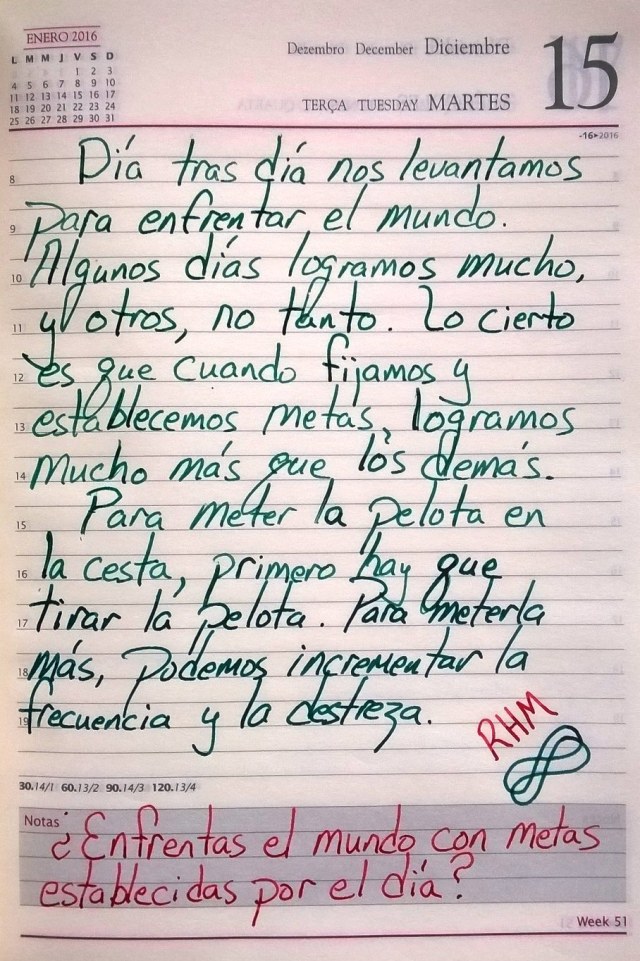 ENERO 2016
L M M J V S D
1 2 3
4 5 6 7 8 9 10
11 12 13 14 15 16 17
18 19 20 21 22 23 24
25 26 27 28 29 30 31
Dezembro December Diciembre
15
TERÇA TUESDAY MARTES
-16▸2016
Día tras día nos levantamos
8
para enfrentar el mundo.
9
Algunos días logramos mucho,
10
y otros, no tanto. Lo cierto
11
es que cuando fijamos y
12
establecemos metas, logramos
13
mucho más que los demás.
14
Para meter la pelota en
15
la cesta, primero hay que
16
tirar la pelota. Para meterla
17
más, podemos incrementar la
18
frecuencia y la destreza.
19
RHM
30.14/1 60.13/2 90.14/3 120.13/4
Notas
¿Enfrentas el mundo con metas
establecidas por el día?
Week 51